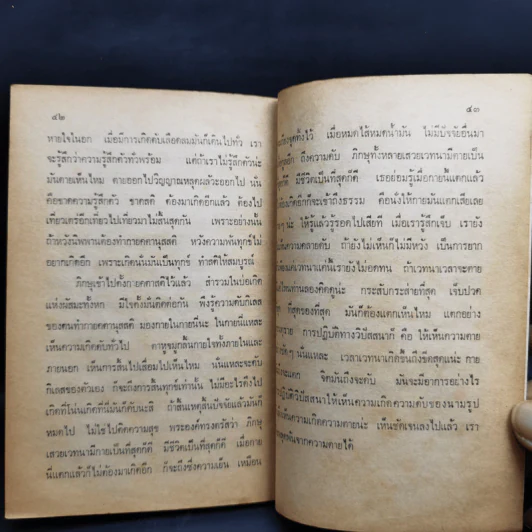 ๔๒
หายใจในอก เมื่อมีการเกิดดับเลือดลมมันก็เดินไปทั่ว เรา
จะรู้สึกว่าความรู้สึกตัวทั่วพร้อม แต่ถ้าเราไม่รู้สึกตัวน่ะ
มันตายเห็นไหม ตายออกไปวิญญาณหลุดผลัวะออกไป นั่น
คือขาดความรู้สึกตัว ขาดสติ ต้องมาเกิดอีกแล้ว ต้องไป
เที่ยวเตร่อีกเที่ยวไปเที่ยวมาไม่สิ้นสุดกัน เพราะอย่างนั้น
ถ้าหวังนิพพานต้องทำกายคตานุสสติ หวังความพ้นทุกข์ไม่
อยากเกิดอีก เพราะเกิดนี่มันเป็นทุกข์ ทำสติให้สมบูรณ์
ภิกษุเข้าไปตั้งกายคตาสติไว้แล้ว สำรวมในบ่อเกิด
แห่งผัสสะทั้งหก มีใจตั้งมั่นติดต่อกัน พึงรู้ความดับกิเลส
ของตนทำกายคตานุสสติ มองกายในกายนี่นะ ในกายนี่แหละ
เห็นความเกิดดับทั่วไป ตาหูจมูกลิ้นกายใจทั้งภายในและ
ภายนอก เห็นการสิ้นไปเสื่อมไปเห็นไหม นั่นแหละจะดับ
กิเลสของตัวเอง ก็จะถึงการสิ้นทุกข์เท่านั้น ไม่มีอะไรดิ้งไป
เกิดที่โน่นเกิดที่นี่มันก็ดับนะสิ ถ้าสิ้นเหตุสิ้นปัจจัยแล้วมันก็
หมดไป ไม่ใช่ไปติดความสุข พระองค์ทรงตรัสว่า ภิกษุ
เสวยเวทนามีกายเป็นที่สุดก็ดี มีชีวิตเป็นที่สุดก็ดี เมื่อกาย
นี่แตกแล้วก็ไม่ต้องมาเกิดอีก ก็จะถึงซึ่งความเย็น เหมือน
๔๓
จุดทิ้งไว้ เมื่อหมดไส้หมดน้ำมัน ไม่มีปัจจัยอื่นมา
ถึงความดับ ภิกษุทั้งหลายเสวยเวทนามีกายเป็น
มีชีวิตเป็นที่สุดก็ดี เธอย่อมรู้เมื่อกายนี้แตกแล้ว
เกิดอีกก็จะเข้าถึงธรรม คือนั่งให้กายมันแตกเสียเลย
นะ ให้รู้แล้วรู้รอดไปเสียที เมื่อเรารู้สึกเจ็บ เรายัง
ความตายดับ ถ้ายังไม่เห็นก็ไม่มีหวัง เป็นการยาก
เวทนาเกิดนี่เรายังไม่อดทน ถ้าเวทนาเวลาจะตาย
ไหนท่านลองคิดดูน่ะ กระสับกระส่ายที่สุด เจ็บปวด
ที่สุดของที่สุด มันก็ต้องแตกเห็นไหม แตกอย่าง
การปฏิบัติทางวิปัสสนาก็ คือ ให้เห็นความตาย
นั่นแหละ เวลาเวทนาเกิดขึ้นถึงขีดสุดแน่ะ กาย
จะแตก จิตมันถึงจะดับ มันจะมีอาการอย่างไร
ปฏิบัติวิปัสสนาให้เห็นความเกิดความดับของนามรูป
เห็นความเกิดความตายน่ะ เห็นชัดเจนลงไปแล้ว เรา
หลุดพ้นจากความตายได้